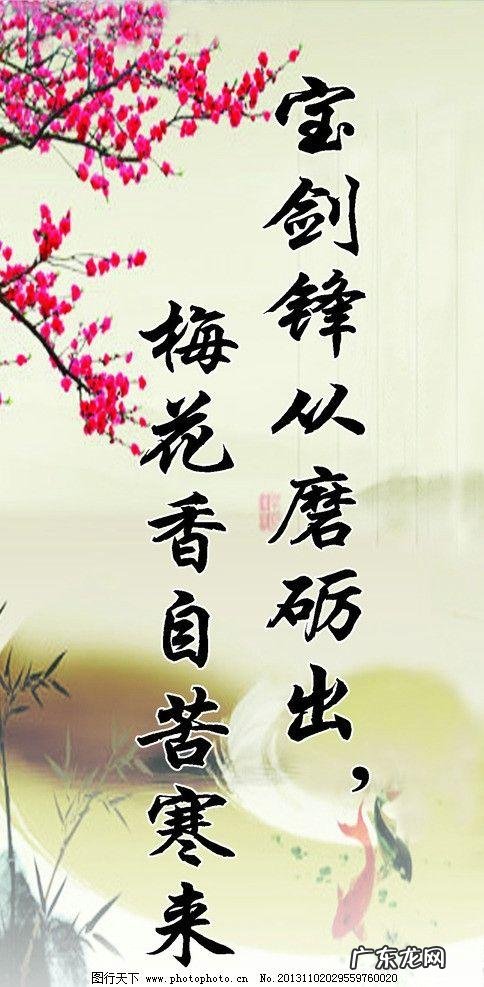 宝剑锋从磨砺出，
梅花香自苦寒来
广东龙网
图行天下 www.photophoto.cn No.20131102029559760020